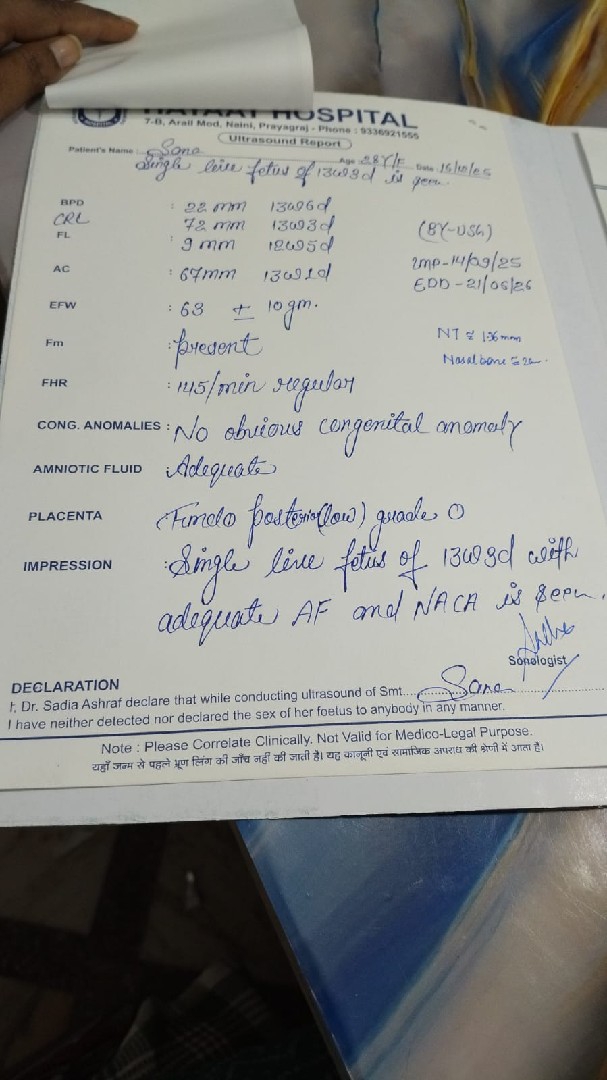 HAYAAT HOSPITAL
7-B, Arail Mod, Naini, Prayagraj - Phone : 9336921555
Ultrasound Report
Patient's Name : Sana Age 28Y/F Date 15/10/25
Single live fetus of 13w3d is seen
BPD : 22 mm 13w6d
CRL 72 mm 13w3d (BY-USG)
FL : 9 mm 12w5d
LMP-14/09/25
AC : 67mm 13w1d
EDD-21/05/26
EFW : 63 ± 10gm.
Fm : present
NT ≈ 1.36mm
Nasal bone ≈
FHR : 145/min regular
CONG. ANOMALIES : No obvious congenital anomaly
AMNIOTIC FLUID : Adequate
PLACENTA Fundo posterio(low) grade 0
IMPRESSION : Single live fetus of 13w3d with
adequate AF and NACA is seen.
Sonologist
DECLARATION
I, Dr. Sadia Ashraf declare that while conducting ultrasound of Smt.... Sana
I have neither detected nor declared the sex of her foetus to anybody in any manner.
Note : Please Correlate Clinically, Not Valid for Medico-Legal Purpose.
यहाँ जन्म से पहले भ्रूण लिंग की जाँच नहीं की जाती है। यह कानूनी एवं सामाजिक अपराध की श्रेणी में आता है।